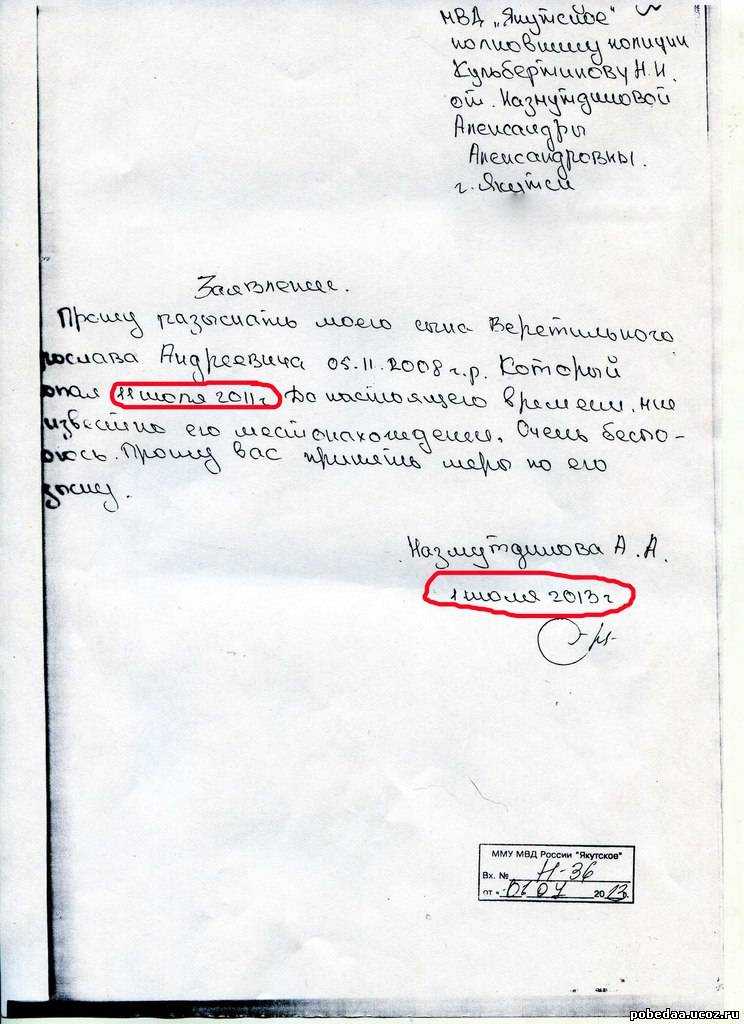 МВД "Якутское"
полковнику полиции
Кульбертинову Н.И.
от Назмутдиновой
Александры
Александровны.
г. Якутск
Заявление.
Прошу разыскать моего сына Веретильного
рослава Андреевича 05.11.2008 г.р. Который
опал 11 июля 2011 г До настоящего времени, мне
известно его местонахождении. Очень беспо-
оюсь. Прошу вас принять меры по его
зыску.
Назмутдинова А.А.
1 июля 2013 г
ММУ МВД России "Якутское"
Вх. № Н-36
от " 01 07 2013 г.
pobedaa.ucoz.ru